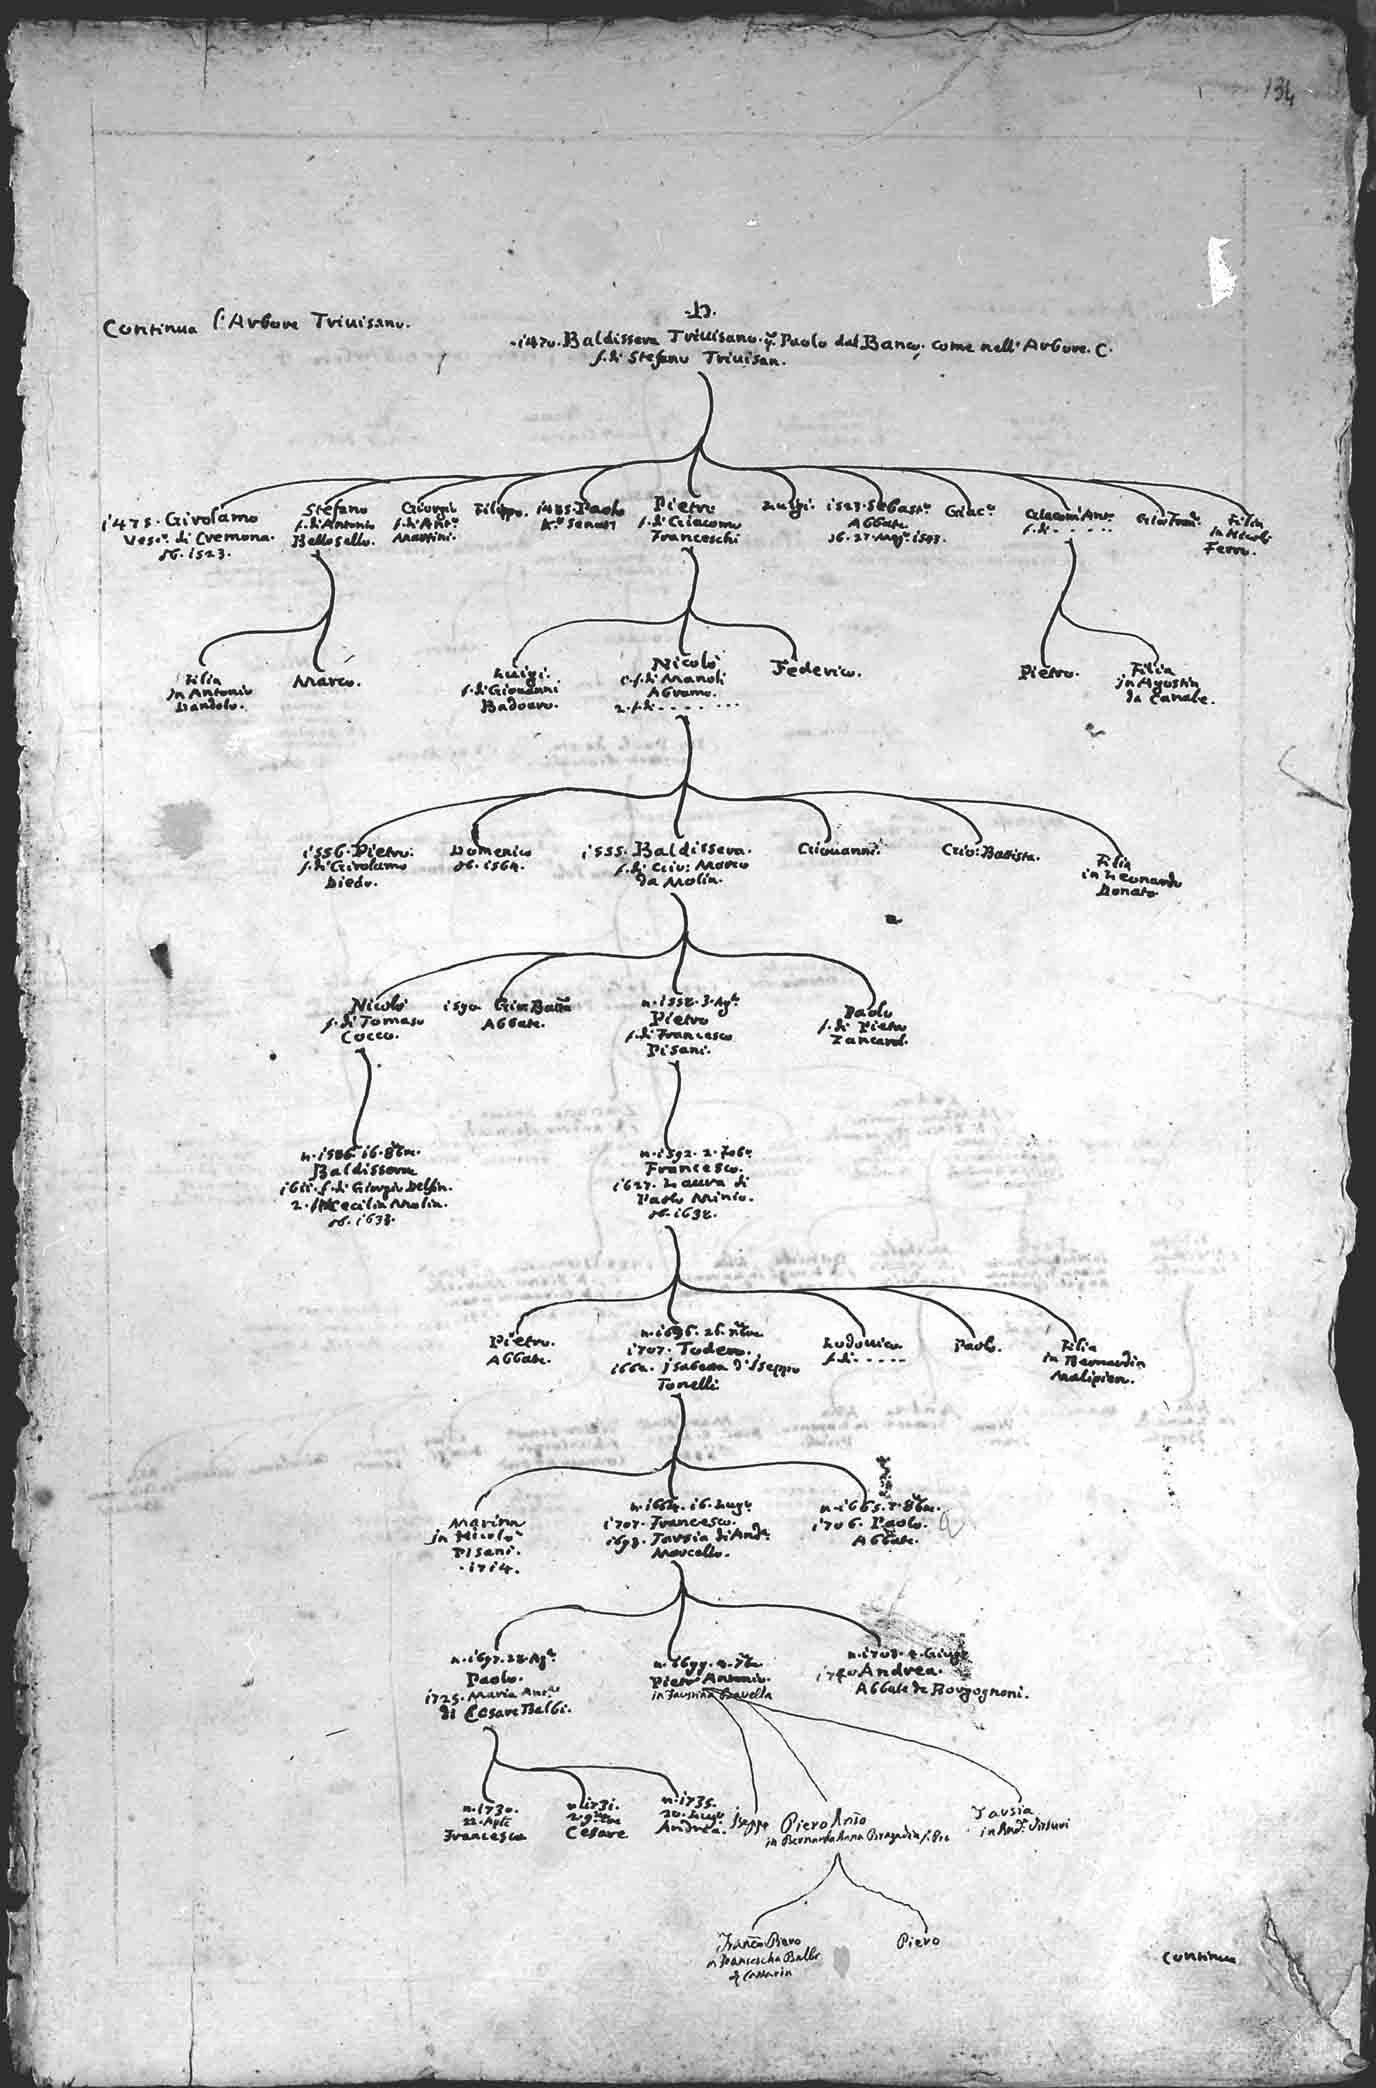 134
Continua l'Arbore Triuisano.
.D.
.1470. Baldissera Triuisano. q. Paolo dal Banco, come nell'Arbore. C.
f. di Stefano Triuisan.
1475. Girolamo
Vesc.o di Cremona.
ob. 1523.
Stefano
f. di Antonio
Bellosello.
Giorgio
f. di Ant.o
Martini.
Filippo.
1485. Paolo
Pietro
f. di Giacomo
Franceschi
Luigi.
1527. Sebast.o
Abbate.
Giac.o
Giacom'Ant.o
f. di . . . . .
Gio: Fran.o
Filia
in Nicolò
Ferro.
Filia
in Antonio
Dandolo.
Marco.
Luigi.
f. di Giouanni
Badoaro.
Nicolò
f. di Manoli
Abramo.
2. f. di . . . . . . .
Federico.
Pietro.
Filia
in Agostin
da Canale.
1556. Pietro.
f. di Girolamo
Diedo.
Domenico
ob. 1564.
1555. Baldissera.
f. di Gio: Marco
da Molin.
Giouanni.
Gio: Battista.
Filia
in Leonardo
Donato
Nicolò
f. di Tomaso
Cocco.
1590 Gio: Batta
Abbate.
n. 1558. 3. Ag.to
Pietro
f. di Francesco
Pisani.
Paolo
f. di Pietro
Zancarol.
n. 1586 16. 8bre.
Baldissera
1611. f. di Giorgio Delfin.
2. Cecilia Molin.
ob. 1633.
n. 1592. 2. 7bre
Francesco.
1627. Laura di
Paolo Minio.
Pietro.
Abbate.
Todero.
1662. Isabetta d'Iseppo
Tonelli
Lodouico
f. di . . . . .
Paolo.
Filia
in Bernardin
Malipiero.
Marina
in Nicolò
Pisani.
.1714.
n. 1664. 16. Lugo
1707. Francesco.
1693. Fausia di And.a
Marcello.
n. 1665. 7. 8bre.
1706. Paolo.
Abbate.
n. 1697. 28. Ag.to
Paolo.
1725. Maria Ant.a
di Cesare Balbi.
n. 1699. 4. 7bre
Pietro Antonio.
in Faustina Grauella
n. 1708. 4. Giugo
1740 Andrea.
Abbate de Borgognoni.
n. 1730.
Francesco
n. 1731.
2. 9bre
Cesare
n. 1735.
20. Lugo
Andrea.
Iseppo
Piero Anto
in Bernarda Anna Bragadin
Fausia
Franco Piero
in Francescha Balbi
Piero
Continua